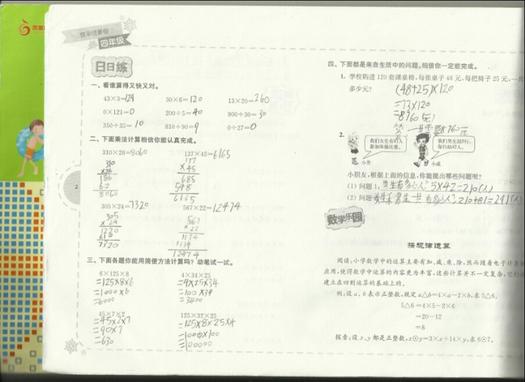 四年级
日日练
一、看谁算得又快又对。
43×3=129 30×6=120 13×20=260
0×121=0 200÷5=40 900÷30=30
350÷35=10 810÷90=9 0÷27=0
二、下面乘法计算相信你能认真完成。
137×45=6165
305×24=7320
567×22=12474
三、下面各题你能用简便方法计算吗？动笔试一试。
8×125×8
4×34×25
=125×8×6
=4×25×34
=1000×6
=100×34
=6000
=3400
45×7×2
125×32×25
=45×2×7
=125×8×25×4
=90×7
=1000×100
=630
=100000
2
四、下面都是来自生活中的问题，相信你一定能完成。
1. 学校购进 120 套课桌椅，每张桌子 48 元，每把椅子 25 元，一
多少元？
(48+25)×120
=73×120
=8760(元)
2.
小朋友，根据上面的信息，你能提出哪些问题呢？
(1) 问题1：
5×42=210(人)
(2) 问题
210+81=291(人)
数学乐园
按规律运算
阅读：小学数学中的运算主要有加、减、乘、除，然而随着电子计算
应用，使得数学中运算的内容更为丰富，这些计算并不一定复杂，它们
建立在四则运算的基础上的。
例：设 a、b 表示正整数，规定 a△b=4×a-2×b，求 5△6。
5△6=4×5-2×6
=20-12
=8
探索：设 x、y 都是正整数，x⊙y=3×x+14×y，求 6⊙7。